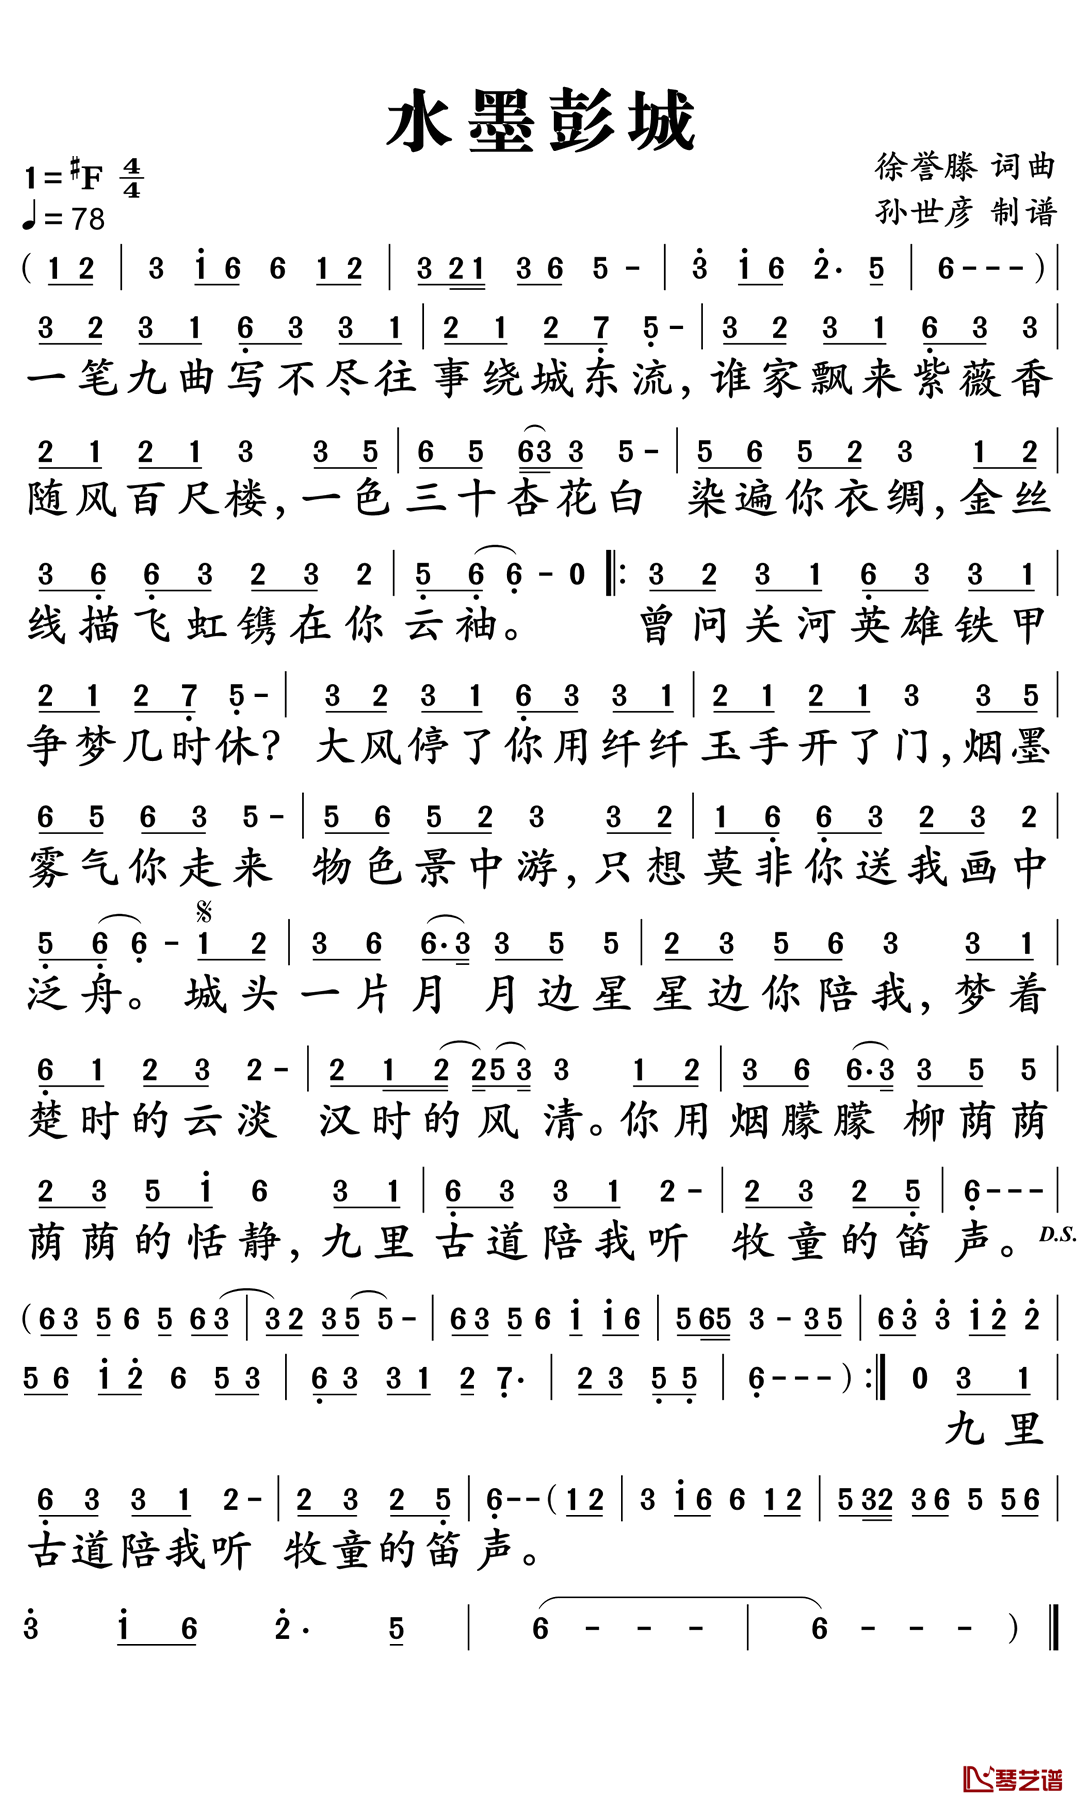 水墨彭城
1=♯F 4/4
徐誉滕 词曲
♩=78
孙世彦 制谱
( 1 2 | 3 i 6 6 1 2 | 3 2 1 3 6 5 - | 3 i 6 2 . 5 | 6 - - - ) |
3 2 3 1 6 3 3 1 | 2 1 2 7 5 - | 3 2 3 1 6 3 3 |
一笔九曲写不尽往事绕城东流,谁家飘来紫薇香
2 1 2 1 3 3 5 | 6 5 6 3 3 5 - | 5 6 5 2 3 1 2 |
随风百尺楼,一色三十杏花白 染遍你衣绸,金丝
3 6 6 3 2 3 2 | 5 6 6 - 0 ‖: 3 2 3 1 6 3 3 1 |
线描飞虹镌在你云袖。 曾问关河英雄铁甲
2 1 2 7 5 - | 3 2 3 1 6 3 3 1 | 2 1 2 1 3 3 5 |
争梦几时休? 大风停了你用纤纤玉手开了门,烟墨
6 5 6 3 5 - | 5 6 5 2 3 3 2 | 1 6 6 3 2 3 2 |
雾气你走来 物色景中游,只想莫非你送我画中
5 6 6 - 𝄋 1 2 | 3 6 6 . 3 3 5 5 | 2 3 5 6 3 3 1 |
泛舟。城头一片月 月边星星边你陪我,梦着
6 1 2 3 2 - | 2 1 2 2 5 3 3 1 2 | 3 6 6 . 3 3 5 5 |
楚时的云淡 汉时的风清。你用烟朦朦 柳荫荫
2 3 5 i 6 3 1 | 6 3 3 1 2 - | 2 3 2 5 | 6 - - - |
荫荫的恬静,九里古道陪我听 牧童的笛声。 D.S.
( 6 3 5 6 5 6 3 | 3 2 3 5 5 - | 6 3 5 6 i i 6 | 5 6 5 3 - 3 5 | 6 3 3 i 2 2 |
5 6 i 2 6 5 3 | 6 3 3 1 2 7 . | 2 3 5 5 | 6 - - - ) :‖ 0 3 1 |
九里
6 3 3 1 2 - | 2 3 2 5 | 6 - - ( 1 2 | 3 i 6 6 1 2 | 5 3 2 3 6 5 5 6 |
古道陪我听 牧童的笛声。
3 i 6 2 . 5 | 6 - - - | 6 - - - ) ‖
琴艺谱